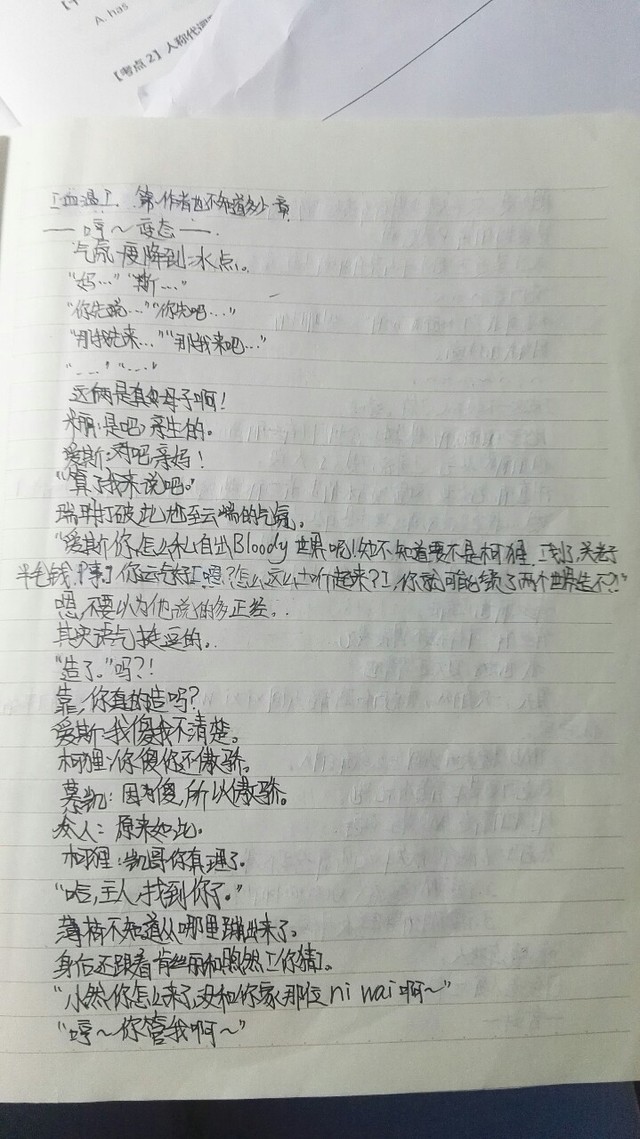 A. has
【考点2】人称代词
[血温]. 第作者也不知道多少章
——哼～变态——.
气氛一度降到冰点。
"妈…" "斯…"
"你先说…" "你先吧…"
"那我先来…" "那我来吧…"
"…" "…"
这俩是真女母子啊!
米丽:是吧,亲生的。
爱斯:对吧亲妈!
"算了我来说吧。"
瑞平打破尴尬至云端的气氛。
"爱斯你怎么私自出Bloody世界呢!知不知道要不是柯狸,[划了,关老子
半毛钱事]你运气好[嗯?怎么这么土听起来?],你就可能续了两个世界造不?"
嗯,不要以为他说的多正经。.
其实语气挺逗的。.
"造了。"吗?!
靠,你真的造吗?
爱斯:我傻我不清楚。
柯狸:你傻你还傲骄。
慕凯:因为傻,所以傲骄。
众人:原来如此。
柯狸:凯哥你真理了。
"哈,主人,找到你了。"
薄荷不知道从哪里蹦出来了。
身后还跟着肯丝丽和煦然[你猜]。
"小然你怎么来了,没和你家那位ni wai啊～"
"哼～你管我啊～"